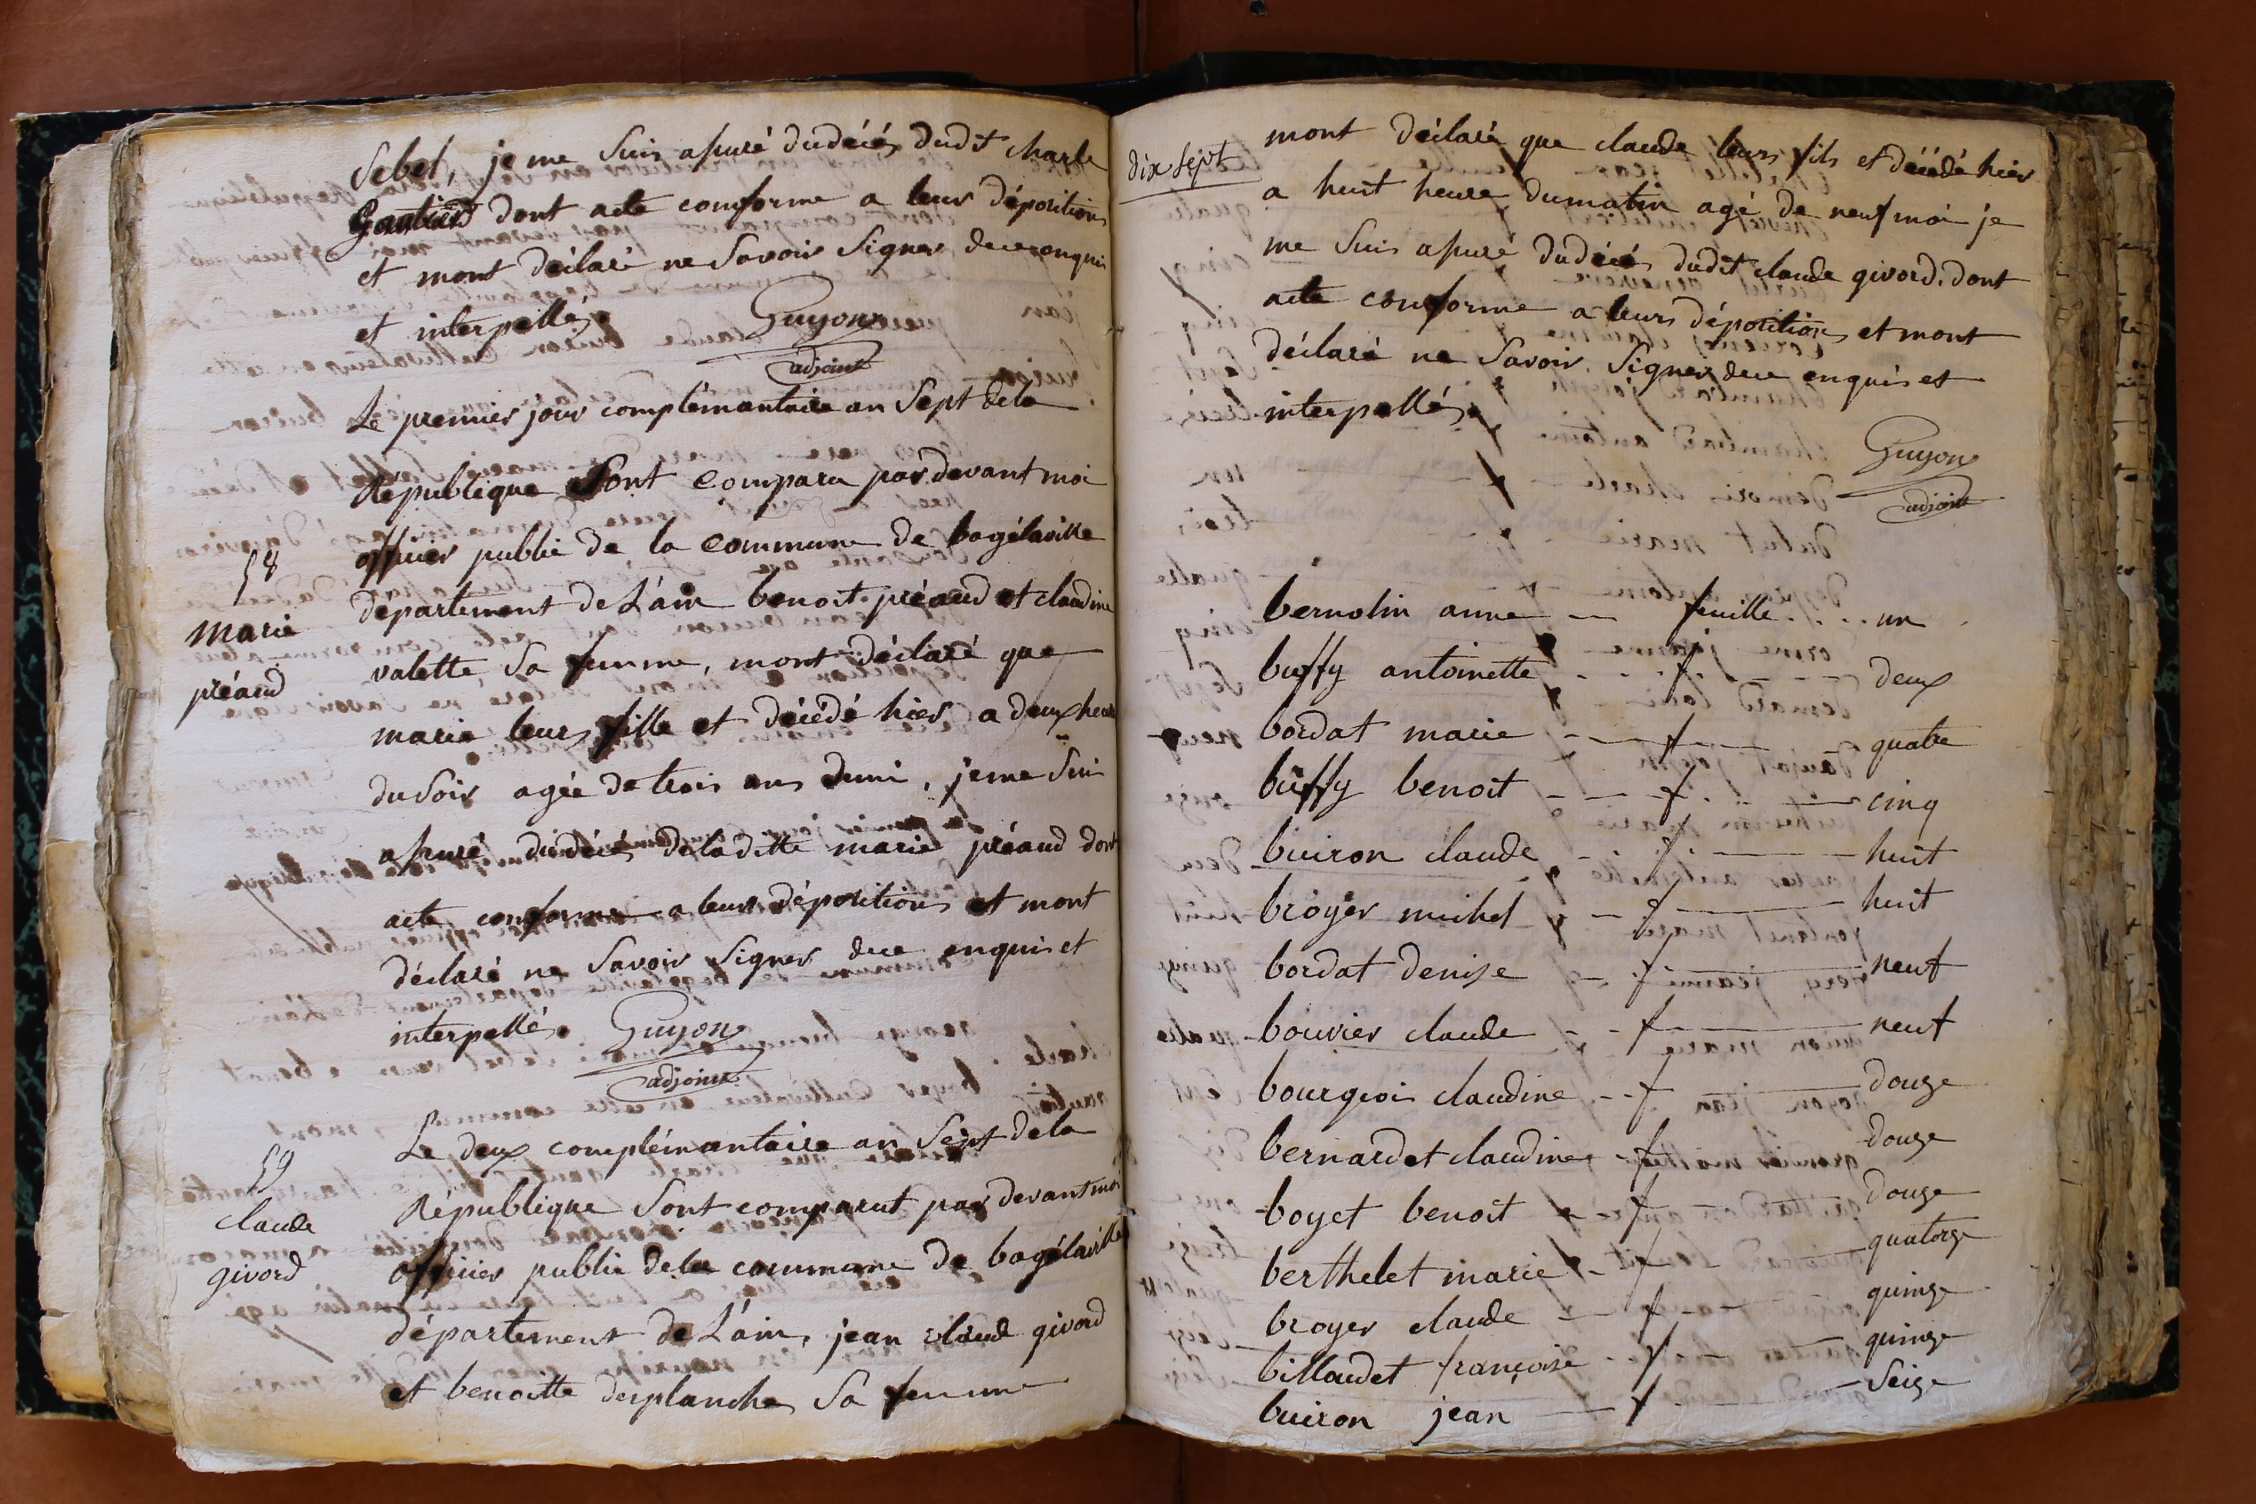 Sebel, je me suis apuré dudécés dudit charle
Gautier dont acte comforme a leurs dépositions
et mont déclaré ne Savoir Signer dece enquis
et interpellés.
Guyon
adjoint
Le premier jour complémantaire an Sept dela
République Sont comparu par devant moi
58
officier public de la commune de bagélaville
marie
département de L'ain benoit préaud et claudine
préaud
valette Sa femme, mont déclaré que
marie leurs fille et décédé hier a deux heure
du Soir agée de trois ans demi, jeme Suis
apuré dudécés deladitte marie préaud dont
acte conforme a leurs dépositions et mont
déclaré ne Savoir Signer dece enquis et
interpellés.
Guyon
adjoint
Le deux complémantaire an Sept dela
59
République Sont comparut par devant moi
claude
officier public dela commune de bagélaville
givord
département de L'ain, jean claude givord
et benoitte desplanche Sa femme
dix Sept
mont déclaré que claude leurs fils et décédé hier
a huit heure dumatin agé de neuf moi je
me Suis apuré dudécés dudit claude givord. dont
acte conforme a leurs dépositions et mont
déclaré ne Savoir Signer dece enquis et
interpellés.
Guyon
adjoint
bernolin anne — feuille . . . un
buffy antoinette . . . f — deux
bordat marie — f — quatre
buffy benoit — f — cinq
buiron claude — f — huit
broyer michel — f — huit
bordat denise — f — neuf
bouvier claude — f — neuf
bourgeois claudine — f — douze
bernardet claudine f — douze
boyet benoit — f douze
berthelet marie — f — quatorze
broyer claude — f — quinze
billaudet françoise — f — quinze
buiron jean — f — Seize